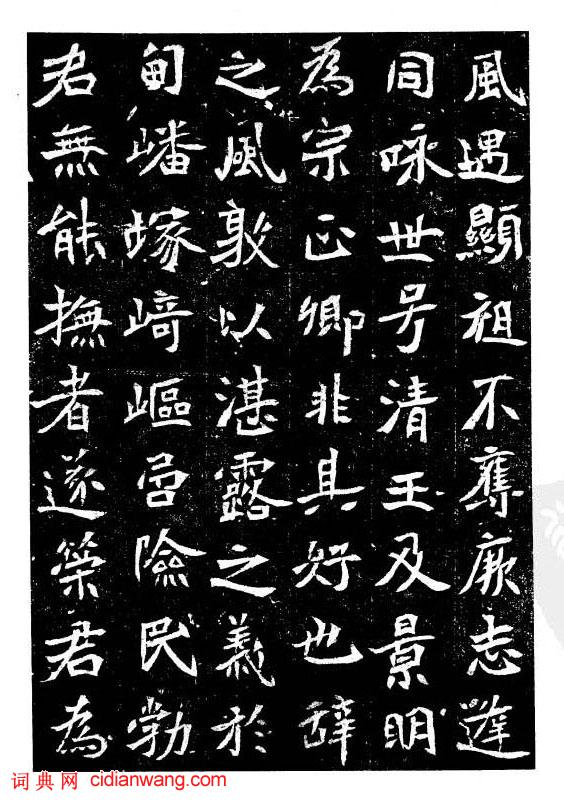 風遇顯祖不奪厥志
同咏世号清王及景明
為宗正卿非其好也辭
之風敦以湛露之義於
甸嶓塚崎嶇嵒險民勃
君無能撫者遂榮君為
词典网 cidianwang.com